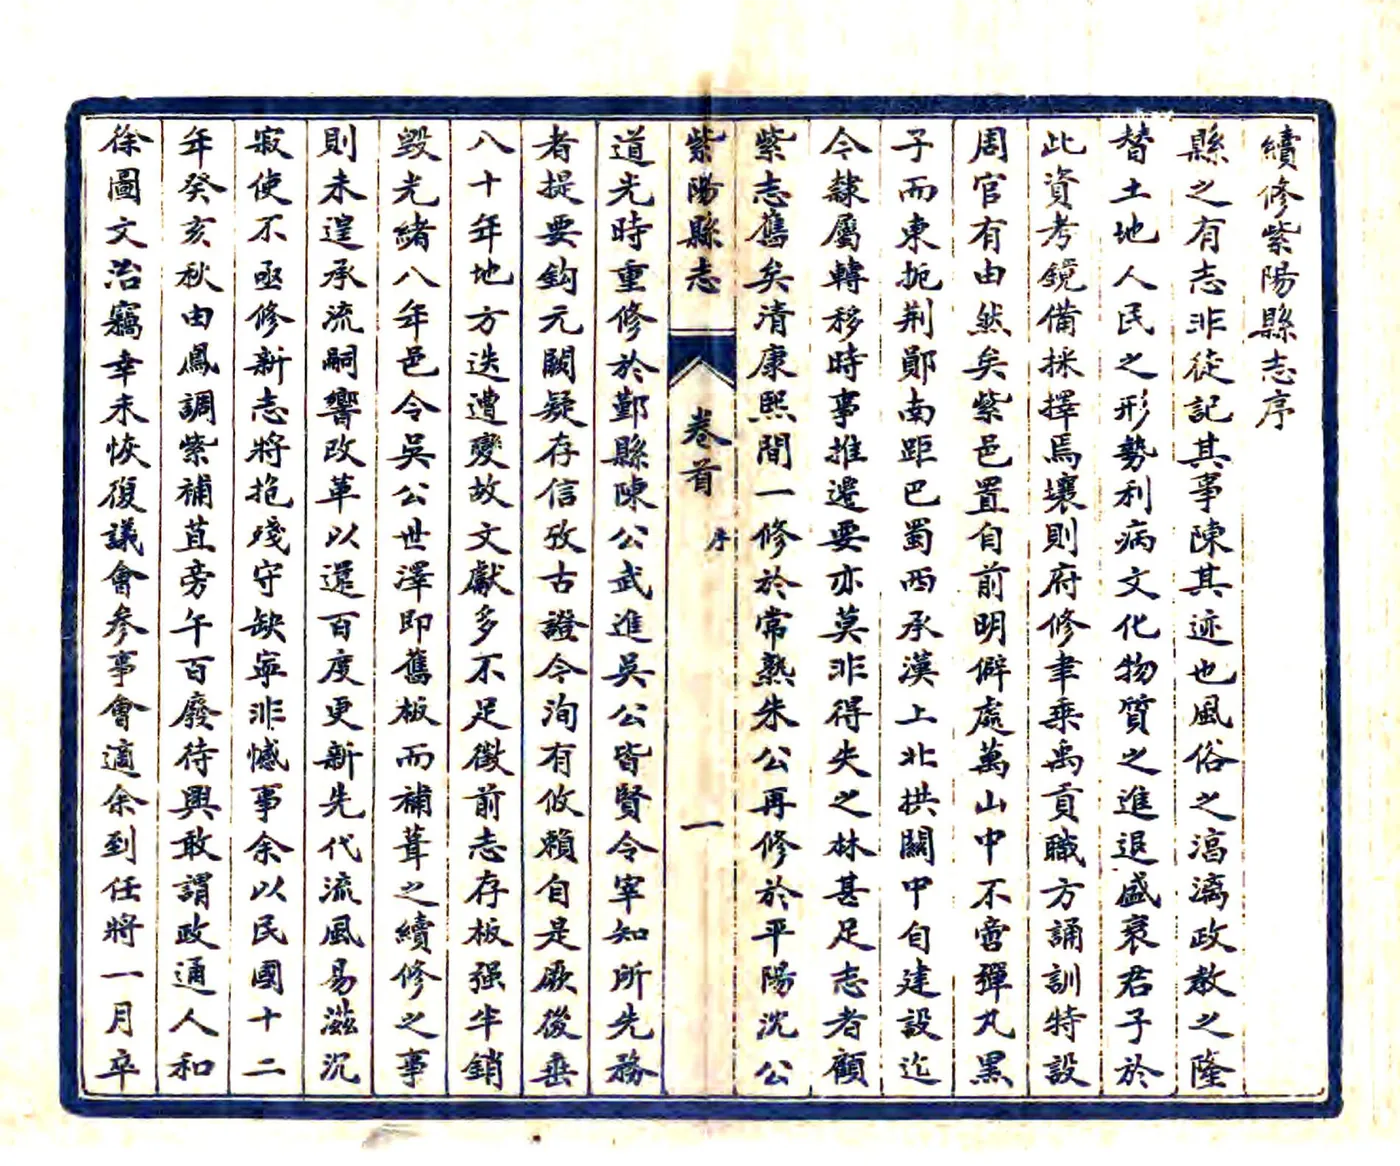 續修紫陽縣志序
縣之有志非徒記其事陳其迹也風俗之滈漓政教之隆
替土地人民之形勢利病文化物質之進退盛衰君子於
此資考鏡備採擇焉壤則府修聿乘禹貢職方誦訓特設
周官有由然矣紫邑置自前明僻處萬山中不啻彈丸黑
子而東扼荆鄖南距巴蜀西承漢上北拱關中自建設迄
今隸屬轉移時事推遷要亦莫非得失之林甚足志者顧
紫志舊矣清康熙間一修於常熟朱公再修於平陽沈公
紫陽縣志
卷首
序
一
道光時重修於鄞縣陳公武進吳公皆賢令宰知所先務
者提要鈎元闕疑存信攷古證今洵有攸賴自是厥後垂
八十年地方迭遭變故文獻多不足徵前志存板强半銷
毀光緒八年邑令吳公世澤即舊板而補葺之續修之事
則未遑承流嗣響改革以還百度更新先代流風易滋沉
寂使不亟修新志將抱殘守缺寧非憾事余以民國十二
年癸亥秋由鳳調紫補苴旁午百廢待興敢謂政通人和
徐圖文治竊幸未恢復議會參事會適余到任將一月卒